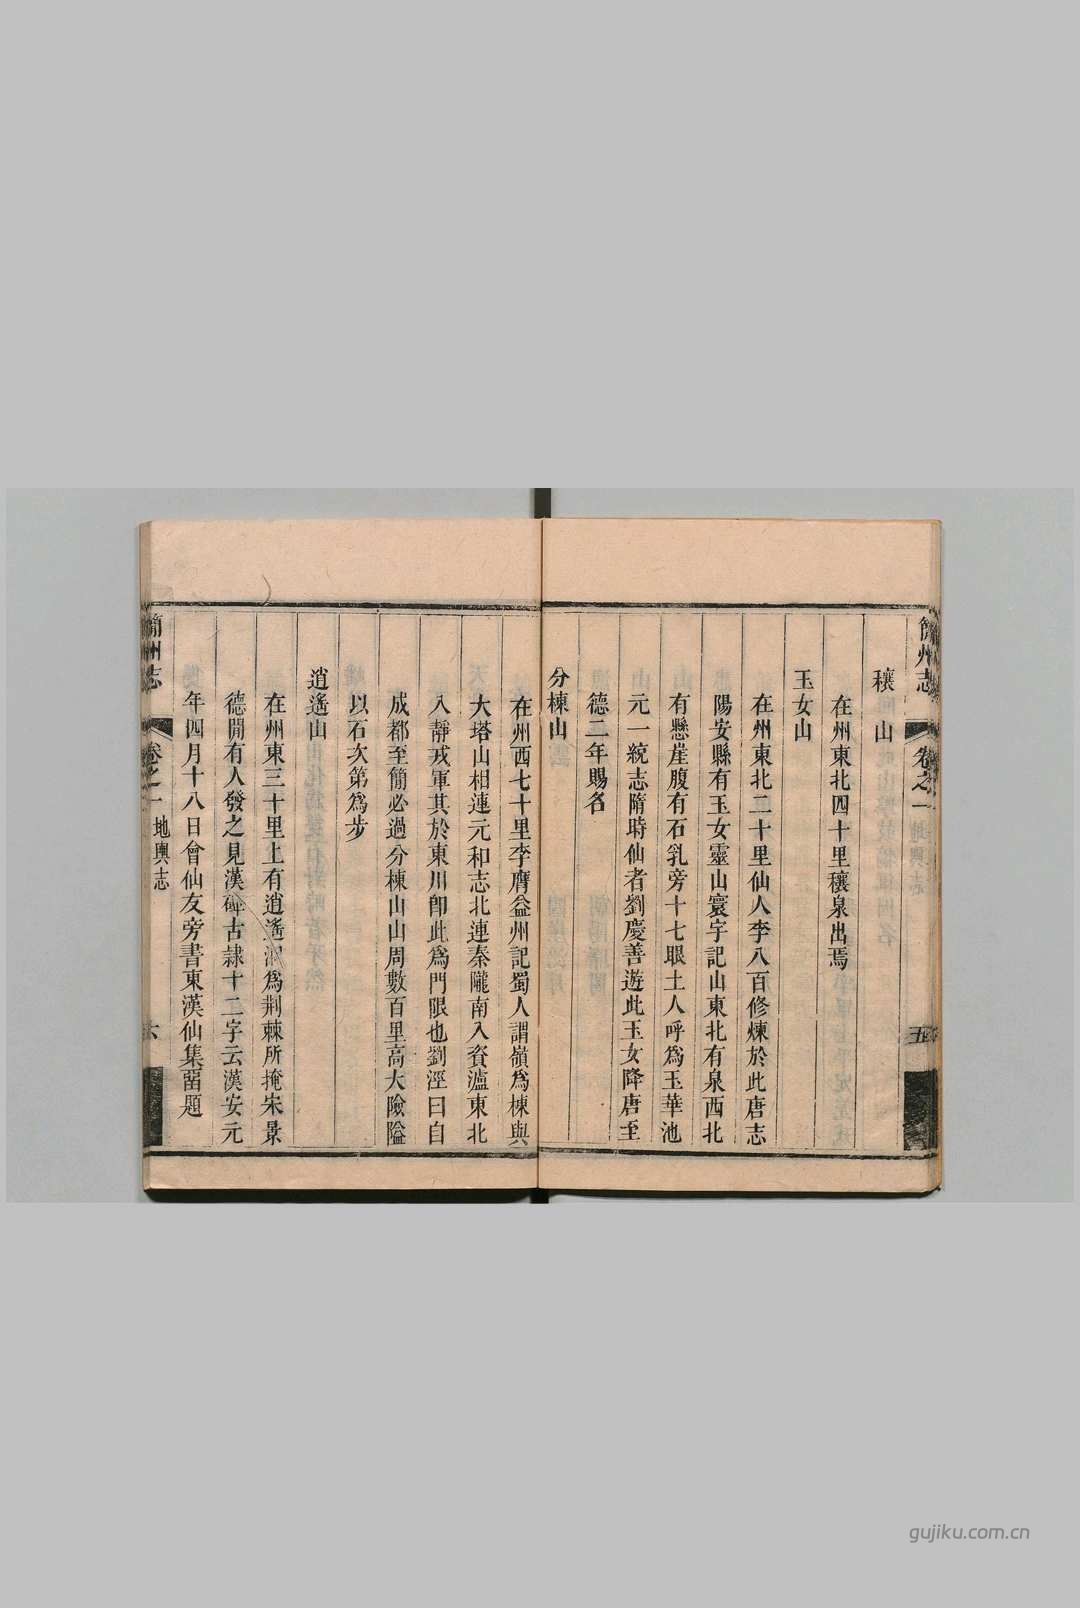 簡州志 卷之一 地輿志 五
穰山
在州東北四十里穰泉出焉
玉女山
在州東北二十里仙人李八百修煉於此唐志
陽安縣有玉女靈山寰宇記山東北有泉西北
有懸崖腹有石乳旁十七眼土人呼爲玉華池
元一統志隋時仙者劉慶善遊此玉女降唐至
德二年賜名
分棟山
在州西七十里李膺益州記蜀人謂嶺爲棟與
大塔山相連元和志北連秦隴南入資瀘東北
入靜戎軍其於東川卽此爲門限也劉涇曰自
成都至簡必過分棟山山周數百里高大險隘
以石次第爲步
逍遙山
在州東三十里上有逍遙洞爲荆棘所掩宋景
德閒有人發之見漢碑古隷十二字云漢安元
年四月十八日會仙友旁書東漢仙集畱題
簡州志 卷之一 地輿志 六
gujiku.com.cn